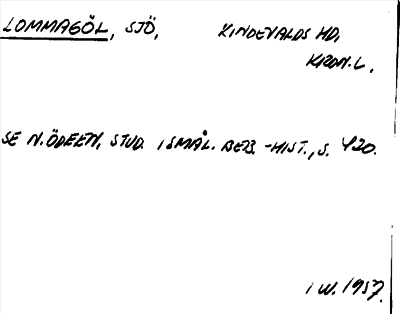 LOMMAGÖL, SJÖ, KINDEVALDS HD,
KRON. L.
SE N. ÖDEEN, STUD. I SMÅL. BEB. -HIST., S. 420.
I W. 1957.